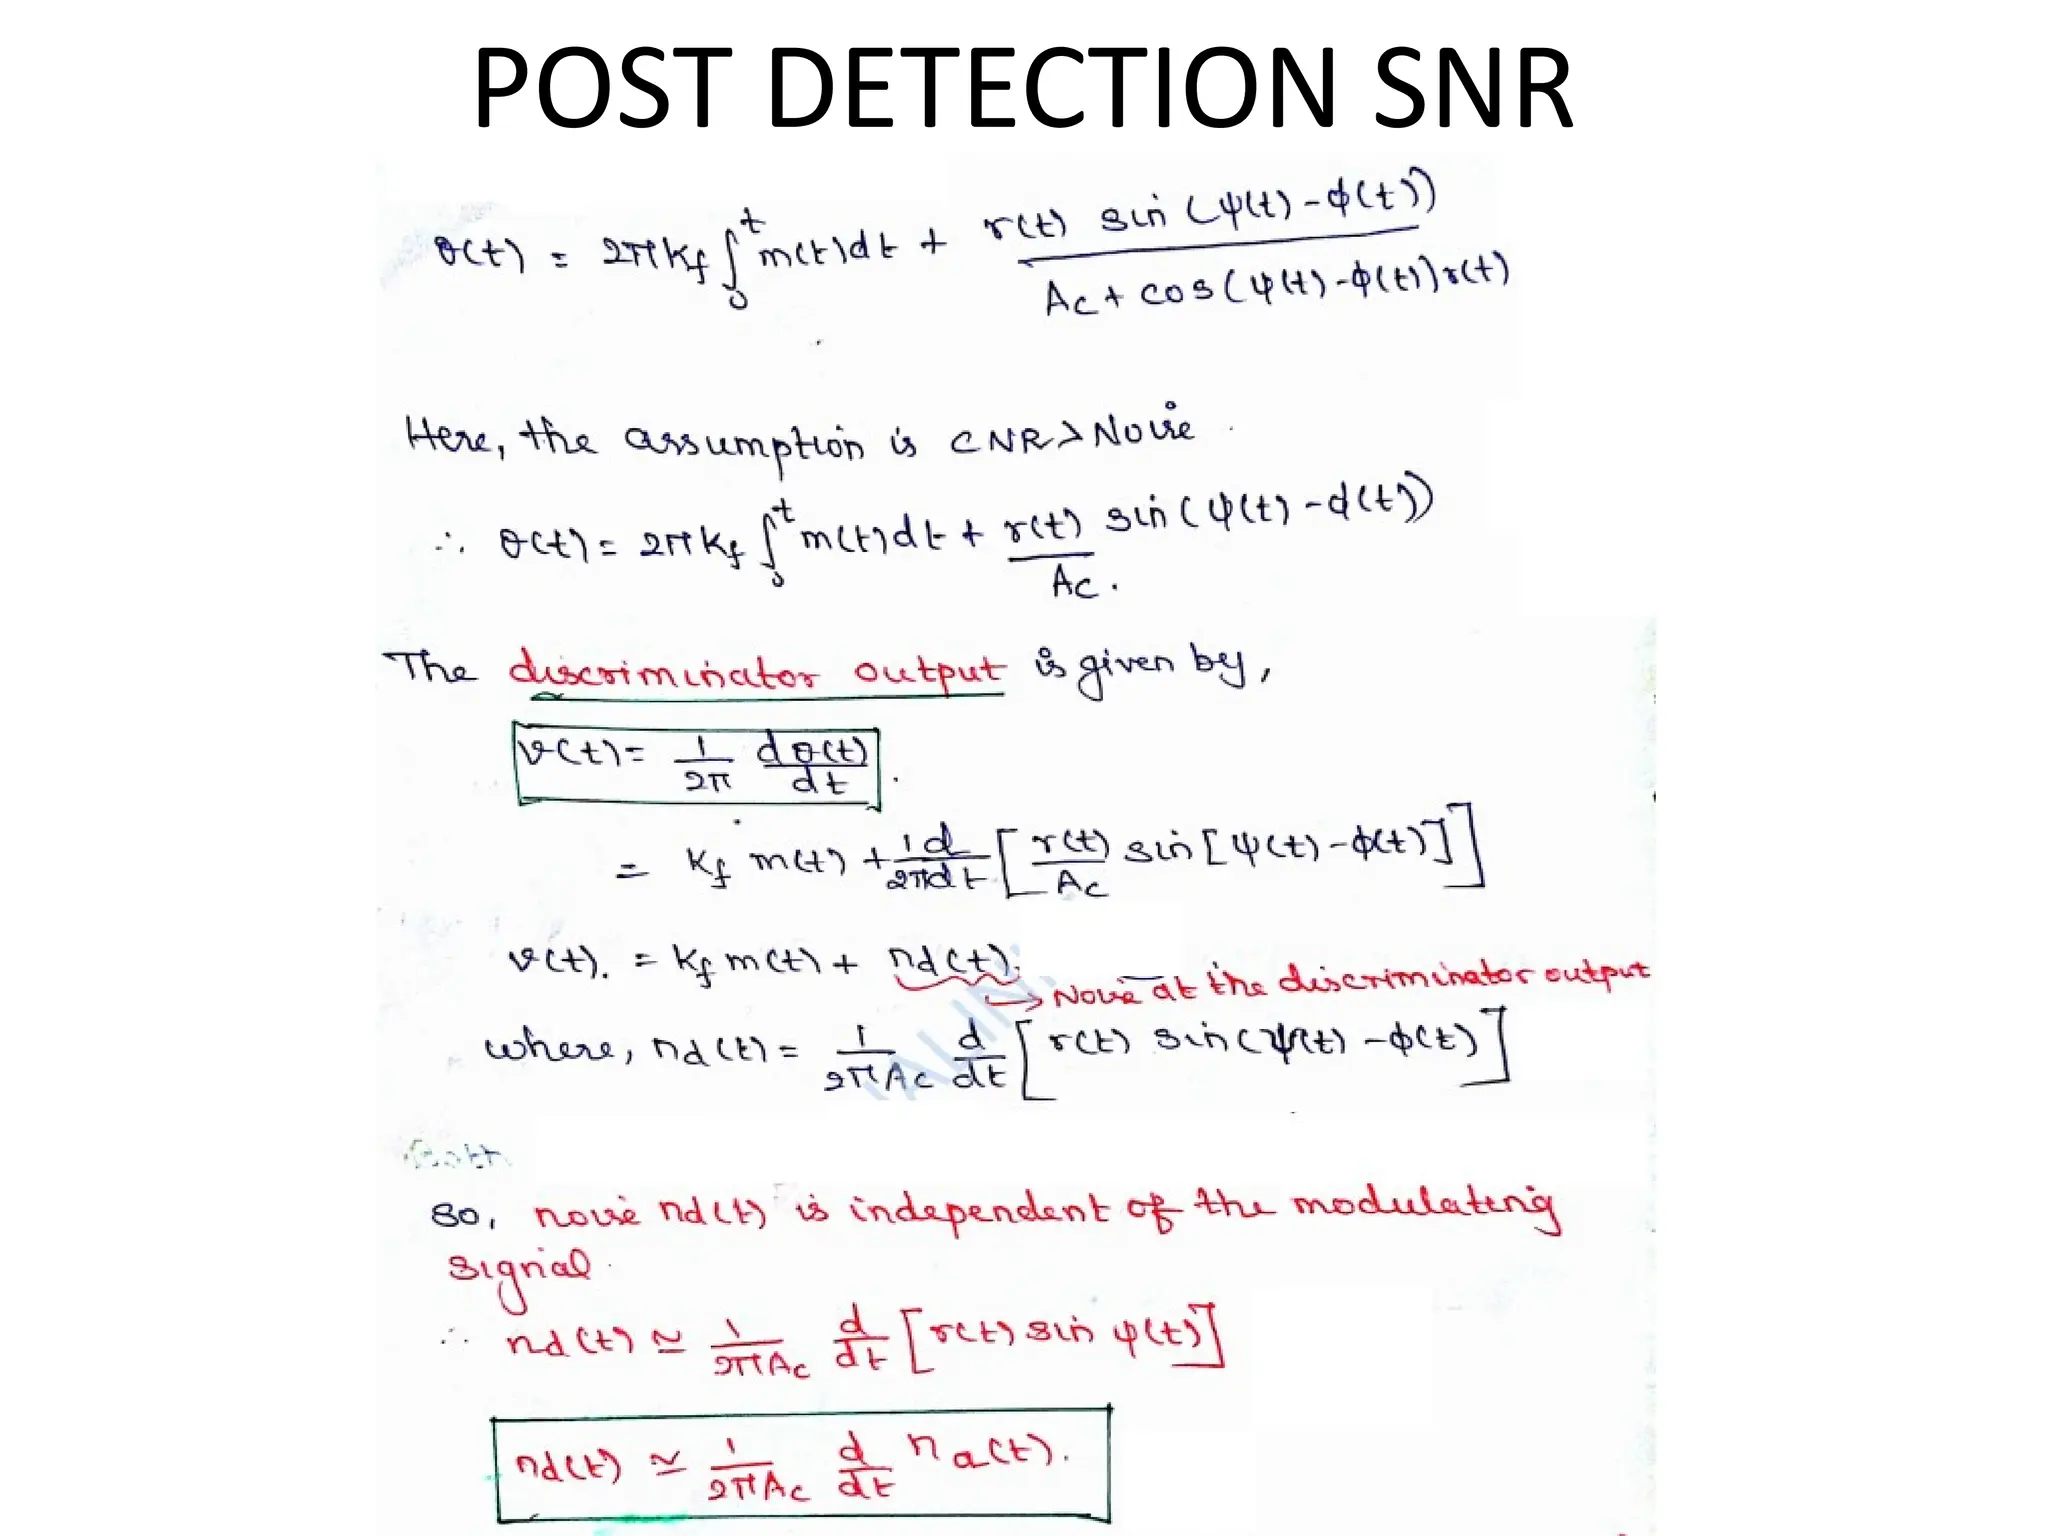 POST DETECTION SNR
θ(t) = 2πkf ∫₀ᵗ m(t)dt + r(t) sin (ψ(t) - φ(t)) / Ac + cos(ψ(t) - φ(t)) r(t)
Here, the assumption is CNR > Noise.
∴ θ(t) = 2πkf ∫₀ᵗ m(t)dt + r(t)/Ac sin(ψ(t) - φ(t))
The discriminator output is given by,
v(t) = 1/2π dθ(t)/dt .
= kf m(t) + 1/2π d/dt [ r(t)/Ac sin[ψ(t) - φ(t)] ]
v(t). = kf m(t) + nd(t).
→ Noise at the discriminator output
where, nd(t) = 1/2πAc d/dt [ r(t) sin(ψ(t) - φ(t) ]
So, noise nd(t) is independent of the modulating
signal.
∴ nd(t) ≃ 1/2πAc d/dt [r(t) sin ψ(t)]
nd(t) ≃ 1/2πAc d/dt na(t).